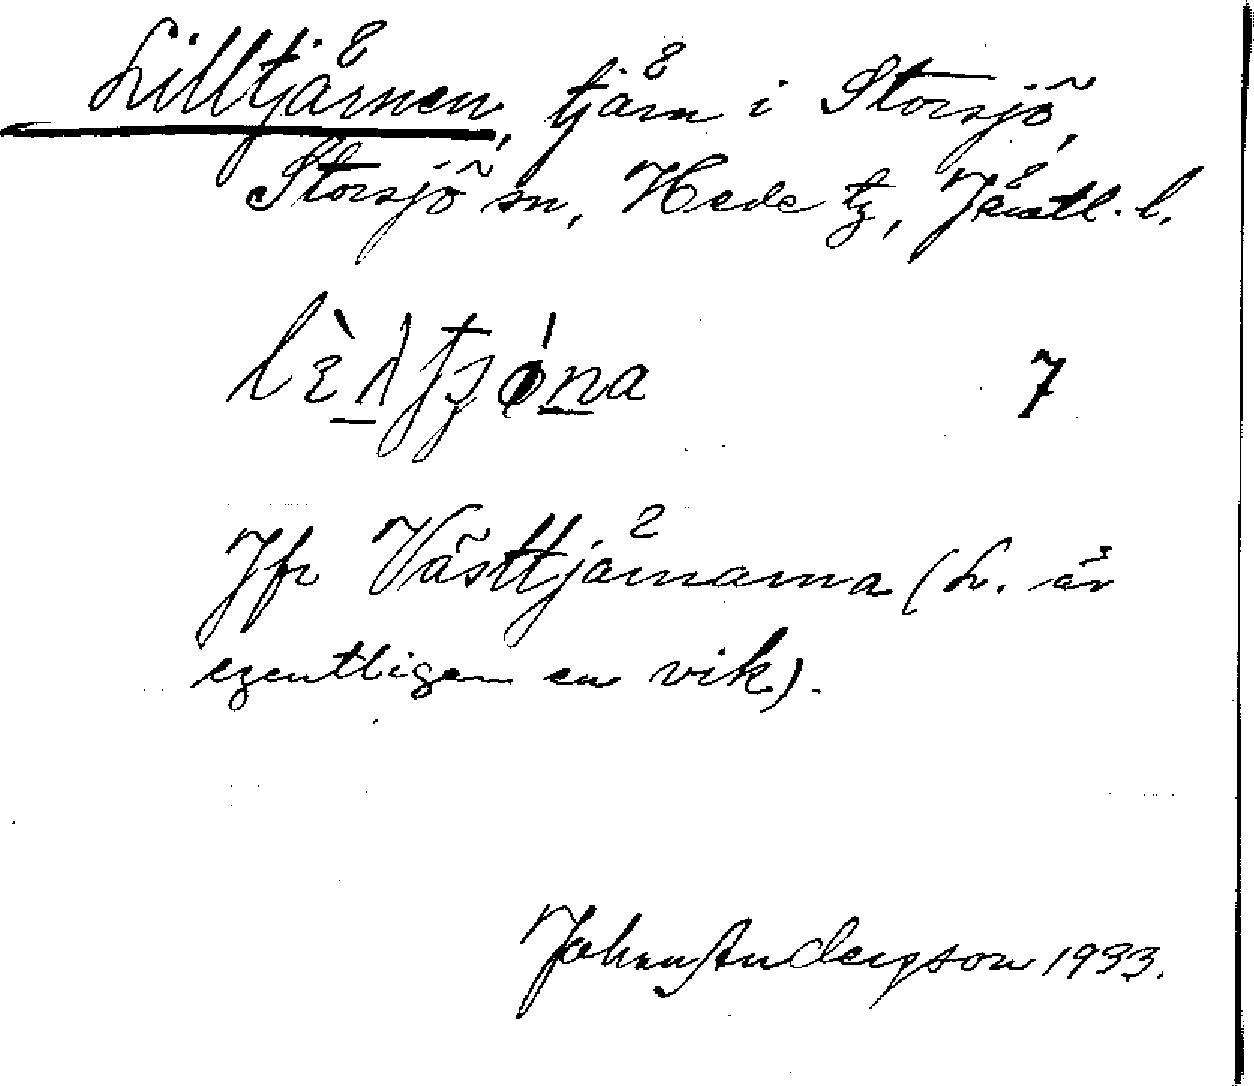 Lilltjårnen, tjårn i Storsjö,
Storsjö sn, Hede tg, Jämtl. l.
7
Jfr Västtjårnarna (L. är
egentligen en vik).
John Anderson 1933.